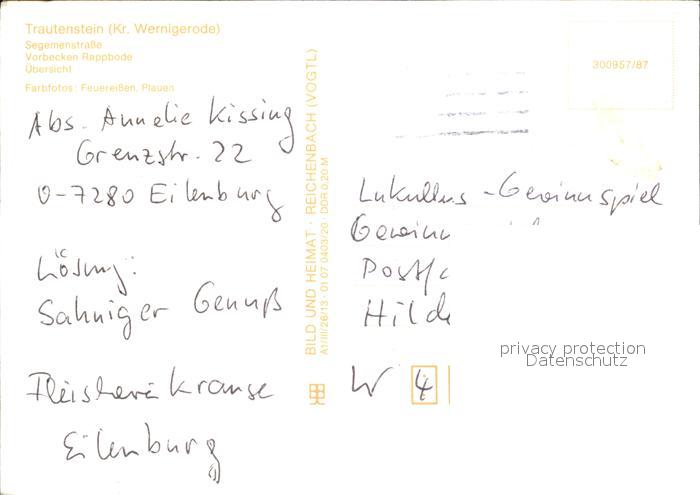 Trautenstein (Kr. Wernigerode)
Segemenstraße
Vorbecken Rappbode
Übersicht
Farbfotos: Feuereißen, Plauen
Abs. Annelie Kissing
Grenzstr. 22
O-7280 Eilenburg
Lösung:
Sahniger Genuß
Fleischerei Krause
Eilenburg
BILD UND HEIMAT · REICHENBACH (VOGTL)
A1/III/26/13 · 01 07 0403/20 · DDR 0,20 M
300957/87
Lukullus-Gewinnspiel
Gewinn
Postf
Hilde
W 4
privacy protection
Datenschutz